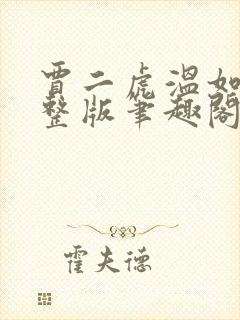 賈二虎溫如
整版筆趣閣
霍夫德